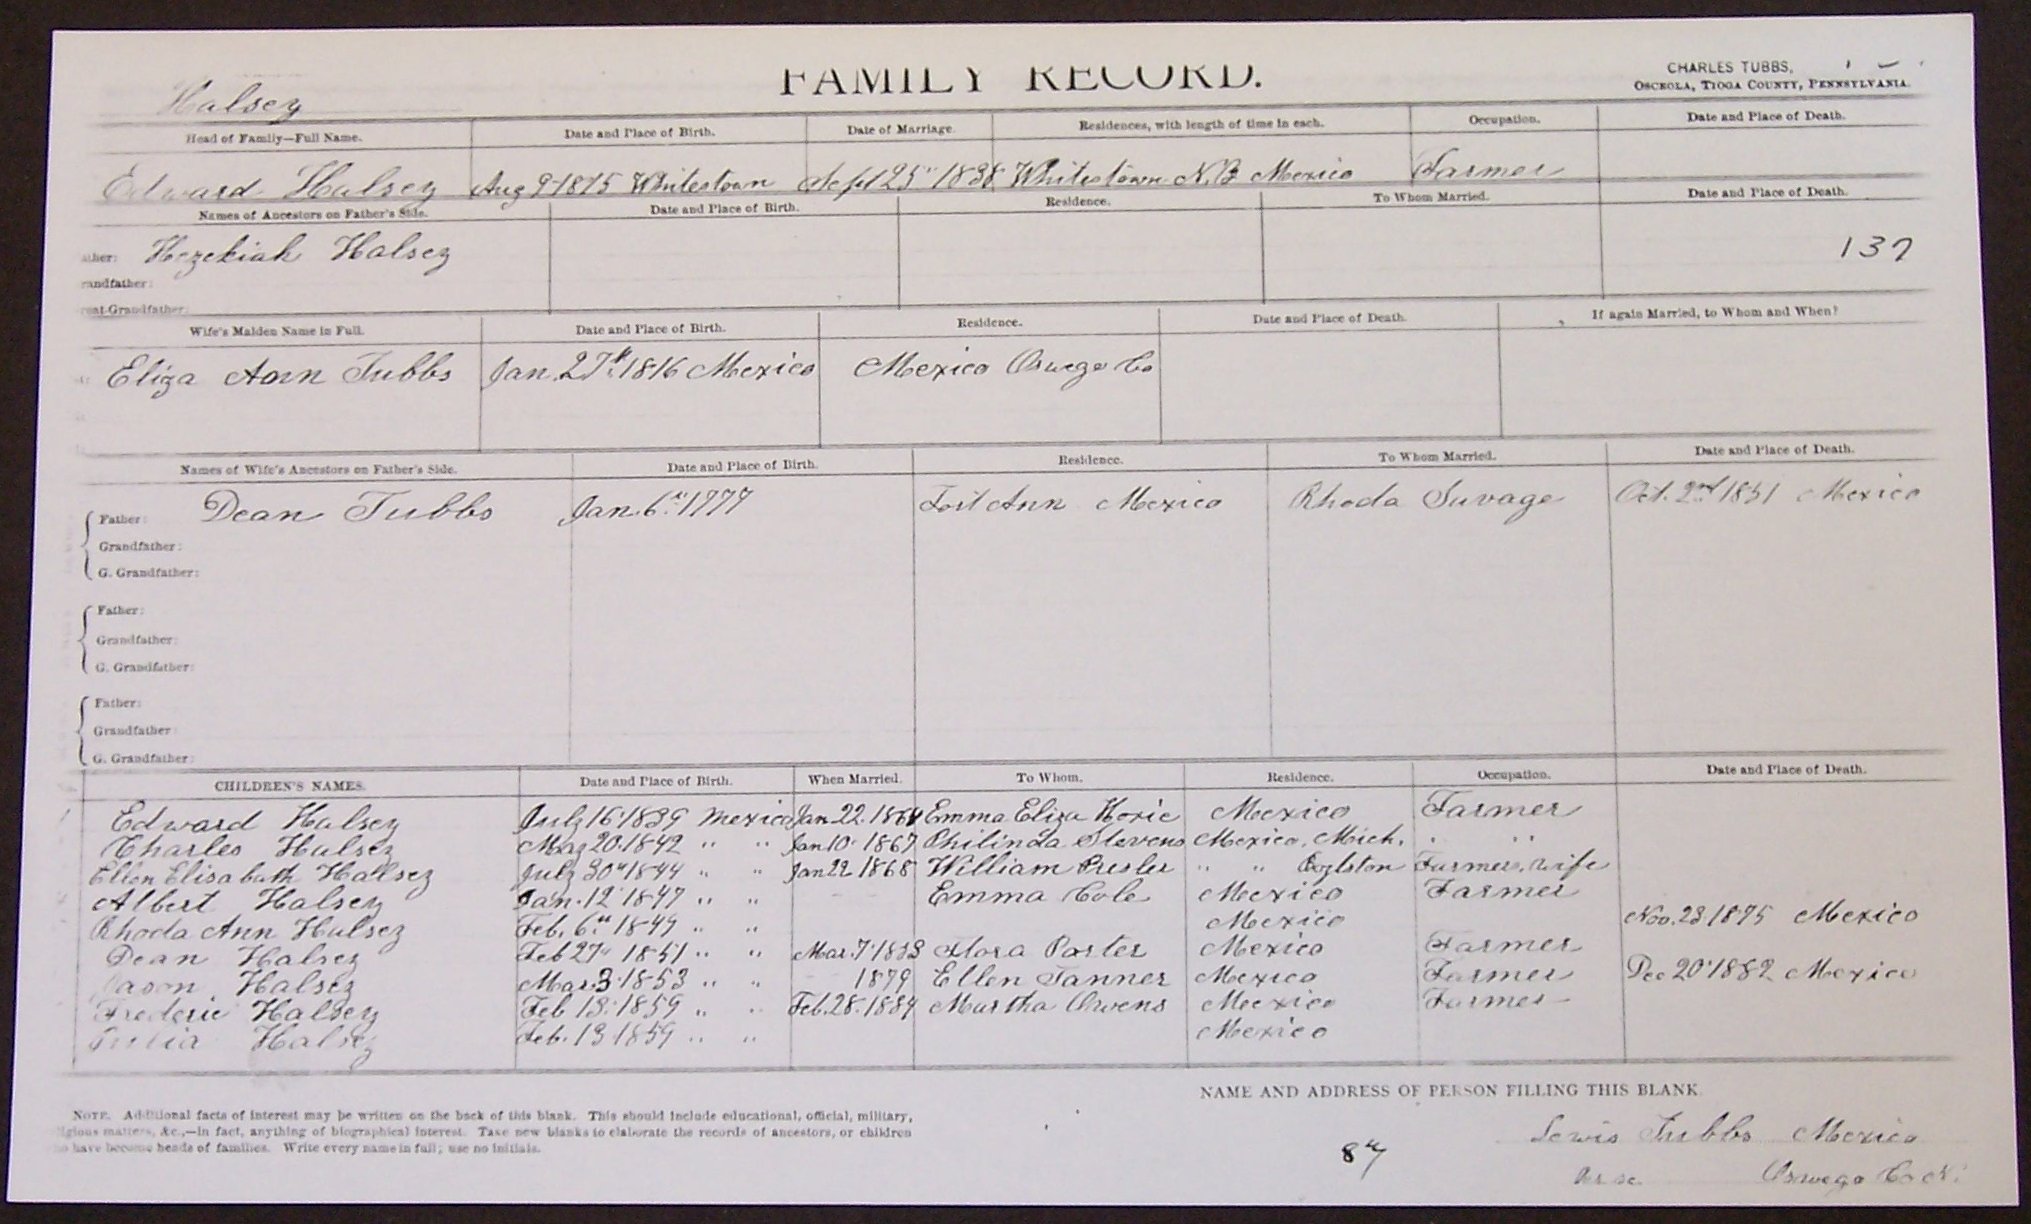 Halsey
FAMILY RECORD.
CHARLES TUBBS,
OSCEOLA, TIOGA COUNTY, PENNSYLVANIA.
Head of Family—Full Name. Date and Place of Birth. Date of Marriage. Residences, with length of time in each. Occupation. Date and Place of Death.
Edward Halsey Aug 9 1815 Whitestown Sept 25" 1838 Whitestown N.Y. Mexico Farmer
Names of Ancestors on Father's Side. Date and Place of Birth. Residence. To Whom Married. Date and Place of Death.
ather: Hezekiah Halsey 137
randfather:
reat-Grandfather:
Wife's Maiden Name in Full. Date and Place of Birth. Residence. Date and Place of Death. If again Married, to Whom and When?
Eliza Ann Tubbs Jan. 27th 1816 Mexico Mexico Oswego Co
Names of Wife's Ancestors on Father's Side. Date and Place of Birth. Residence. To Whom Married. Date and Place of Death.
Father: Dean Tubbs Jan. 6" 1777 Fort Ann Mexico Rhoda Savage Oct. 2nd 1851 Mexico
Grandfather:
G. Grandfather:
Father:
Grandfather:
G. Grandfather:
Father:
Grandfather
G. Grandfather:
CHILDREN'S NAMES. Date and Place of Birth. When Married. To Whom. Residence. Occupation. Date and Place of Death.
Edward Halsey July 16 1839 Mexico Jan 22 1864 Emma Eliza Mexico Farmer
Charles Halsey May 20 1842 " " Jan 10 1867 Philinda Stevens Mexico, Mich. " "
Ellen Elisabath Halsey July 30" 1844 " " Jan 22 1868 William Presler " " Farmers, wife
Albert Halsey Jan. 12 1847 " " Emma Cole Mexico Farmer
Rhoda Ann Halsey Feb. 6" 1849 " " Mexico Nov. 23 1875 Mexico
Dean Halsey Feb 27" 1851 " " Mar. 7 1883 Flora Porter Mexico Farmer
Jason Halsey Mar. 3 1853 " " 1879 Ellen Tanner Mexico Farmer Dec 20 1882 Mexico
Frederic Halsey Feb 13 1859 " " Feb. 28 1884 Martha Owens Mexico Farmer
Julia Halsey Feb. 13 1859 " " Mexico
NAME AND ADDRESS OF PERSON FILLING THIS BLANK.
NOTE. Additional facts of interest may be written on the back of this blank. This should include educational, official, military,
igious matters, &c.,—in fact, anything of biographical interest. Take new blanks to elaborate the records of ancestors, or children
o have become heads of families. Write every name in full; use no initials.
Lewis Tubbs Mexico
87
Oswego Co N.